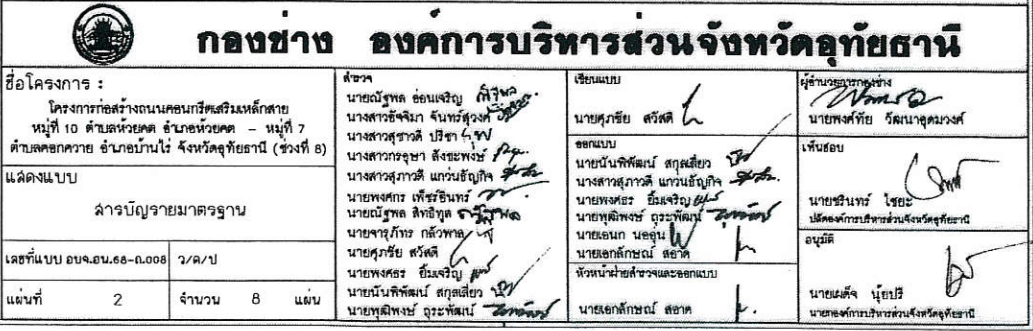 กองช่าง องค์การบริหารส่วนจังหวัดอุทัยธานี
ชื่อโครงการ :
โครงการก่อสร้างถนนคอนกรีตเสริมเหล็กสาย
หมู่ที่ 10 ตำบลห้วยคต อำเภอห้วยคต - หมู่ที่ 7
ตำบลคอกควาย อำเภอบ้านไร่ จังหวัดอุทัยธานี (ช่วงที่ 8)
แสดงแบบ
สารบัญรายมาตรฐาน
เลขที่แบบ อบจ.อน.68-ถ.008 ว/ด/ป
แผ่นที่ 2 จำนวน 8 แผ่น
สำรวจ
นายณัฐพล อ่อนเจริญ
นางสาวอัจจิมา จันทร์สุวงค์
นางสาวสุชาวดี ปรีชา
นางสาวกรอุษา สังขะพงษ์
นางสาวสุภาวดี แกวนธัญกิจ
นายพงศกร เพ็ชรอินทร์
นายณัฐพล สิทธิทูล
นายจารุภัทร กลัวพาล
นายศุภชัย สวัสดี
นายพงศธร ยิ้มเจริญ
นายนันพิพัฒน์ สกุลเสี่ยว
นายพุฒิพงษ์ ถุระพัฒน์
เขียนแบบ
นายศุภชัย สวัสดี
ออกแบบ
นายนันพิพัฒน์ สกุลเสี่ยว
นางสาวสุภาวดี แกวนธัญกิจ
นายพงศธร ยิ้มเจริญ
นายพุฒิพงษ์ ถุระพัฒน์
นายเอนก นออุ่น
นายเอกลักษณ์ สอาด
หัวหน้าฝ่ายสำรวจและออกแบบ
นายเอกลักษณ์ สอาด
ผู้อำนวยการกองช่าง
นายพงศ์ทัย วัฒนาอุดมวงศ์
เห็นชอบ
นายชรินทร์ ไชยะ
ปลัดองค์การบริหารส่วนจังหวัดอุทัยธานี
อนุมัติ
นายเผด็จ นุ้ยปรี
นายกองค์การบริหารส่วนจังหวัดอุทัยธานี